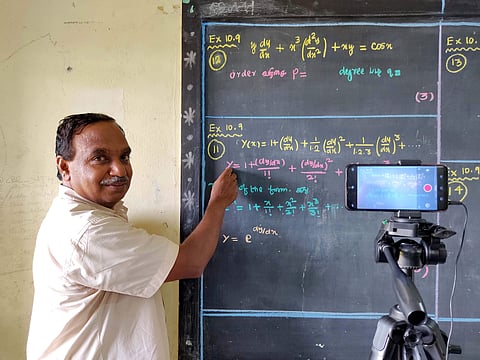 Ex 10.9
12 y dy/dx + x³ (d²y/dx²) + xy = cosx
order P =
degree q =
(3)
Ex 10.9
11 Y(x) = 1 + (dy/dx) + 1/1·2 (dy/dx)² + 1/1·2·3 (dy/dx)³ + ...
Y = 1 + (dy/dx)/1! + (dy/dx)²/2! +
of the form
= 1 + x/1! + x²/2! + x³/3! + ...
Y = e^dy/dx
13
14